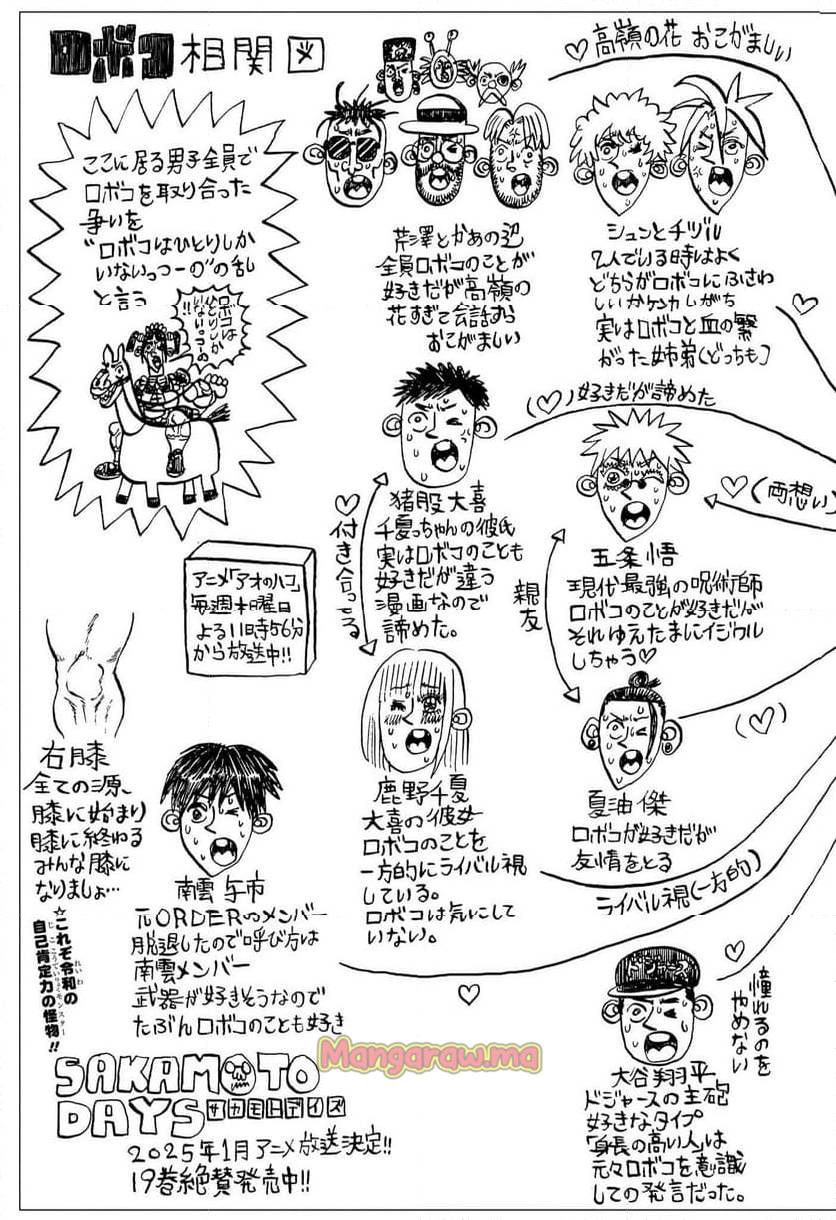 ロボコ相関図
♡高嶺の花 おこがましい
ここに居る男子全員で
ロボコを取り合った
争いを
“ロボコはひとりしか
いないっつーの”の乱
と言う
ロボコは
ひとりしか
いないっつーの
!!
芹澤とかあの辺
全員ロボコのことが
好きだが高嶺の
花すぎて会話すら
おこがましい
シュンとチヅル
2人でいる時はよく
どちらがロボコにふさわ
しいかケンカしがち
実はロボコと血の繋
がった姉弟(どっちも)
♡
(♡)好きだが諦めた
猪股大喜
千夏っちゃんの彼氏
実はロボコのことも
好きだが違う
漫画なので
諦めた。
♡付き合ってる
五条悟
現代最強の呪術師
ロボコのことが好きだが
それゆえたまにイジワル
しちゃう♡
♡(両想い)
親友
アニメ「アオのハコ」
毎週木曜日
よる11時56分
から放送中!!
右膝
全ての源、
膝に始まり
膝に終わる
みんな膝に
なりましょ…
☆これぞ令和の
れいわ
自己肯定力の怪物!!
じここうていりょくモンスター
南雲与市
元ORDERのメンバー
脱退したので呼び方は
南雲メンバー
武器が好きそうなので
たぶんロボコのことも好き
鹿野千夏
大喜の彼女
ロボコのことを
一方的にライバル視
している。
ロボコは気にして
いない。
夏油傑
ロボコが好きだが
友情をとる
(♡)
ライバル視(一方的)
♡
ドジャース
憧れるのを
やめない
大谷翔平
ドジャースの主砲
好きなタイプ
「身長の高い人」は
元々ロボコを意識
しての発言だった。
SAKAMOTO
DAYS サカモトデイズ
2025年1月アニメ放送決定!!
19巻絶賛発売中!!
Mangaraw.ma